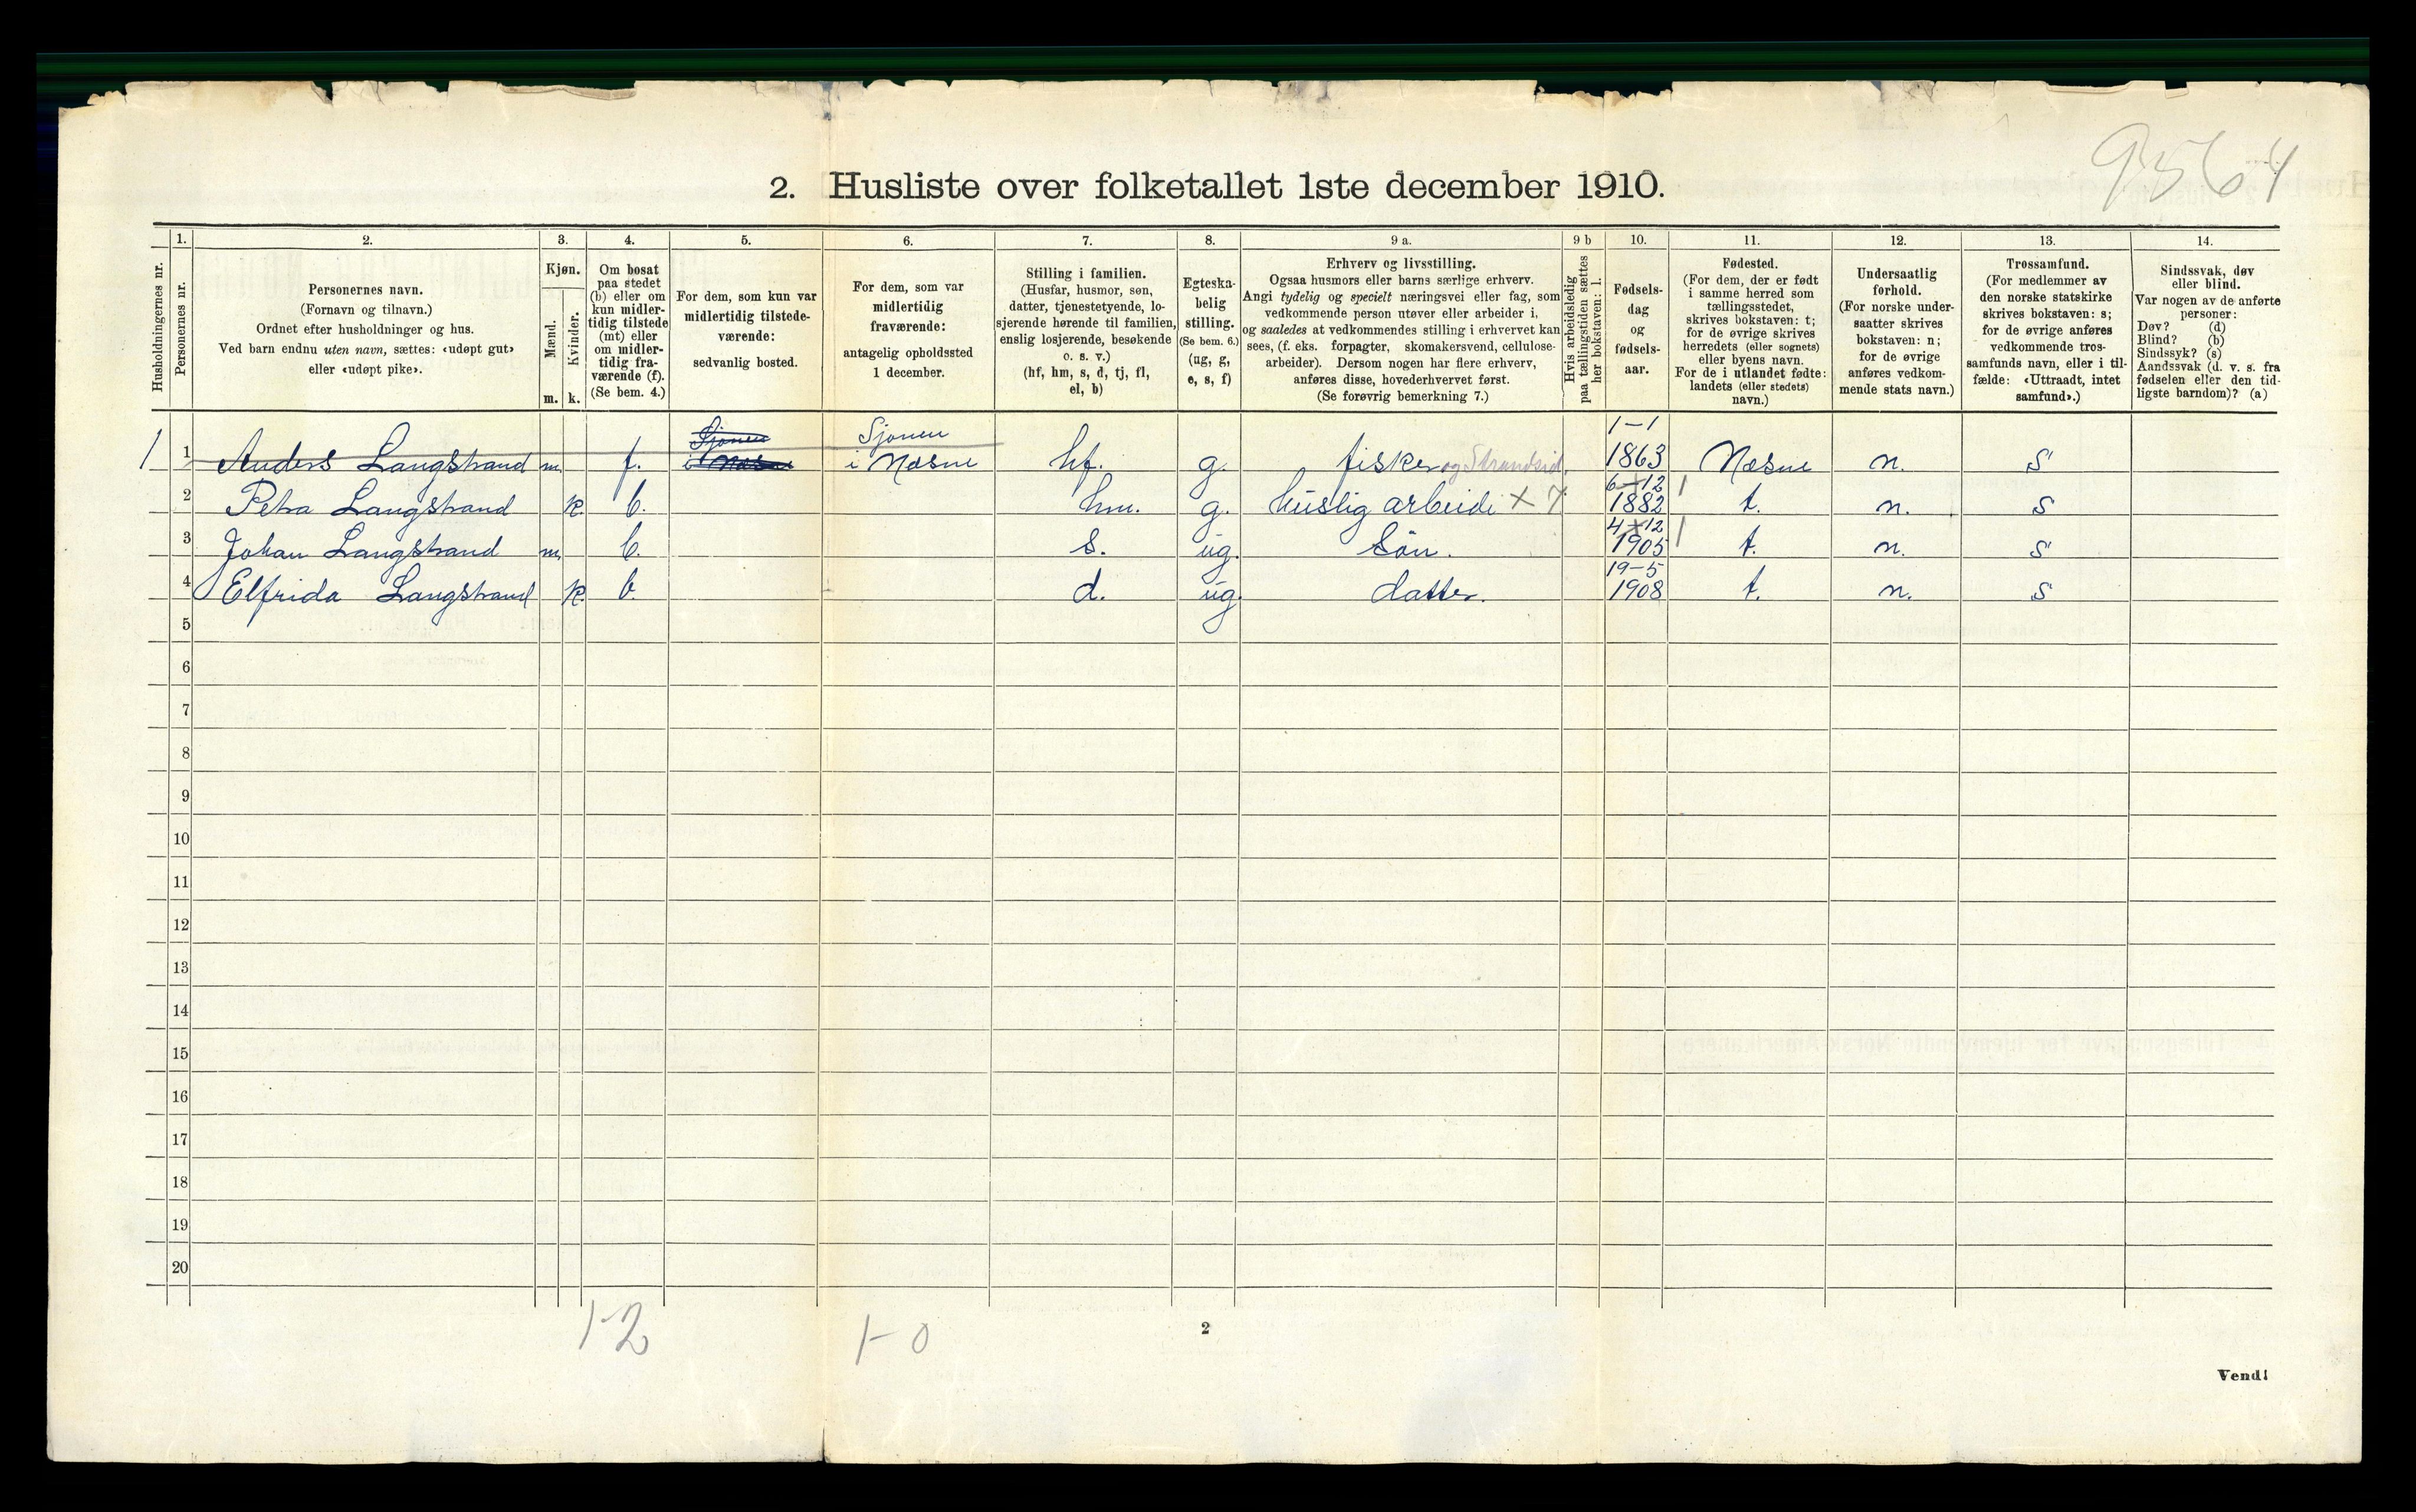 9564
2. Husliste over folketallet 1ste december 1910.
Husholdningernes nr.
1. Personernes nr.
2. Personernes navn.
(Fornavn og tilnavn.)
Ordnet efter husholdninger og hus.
Ved barn endnu uten navn, sættes: «udøpt gut»
eller «udøpt pike».
3. Kjøn.
Mænd. Kvinder.
m. k.
4. Om bosat
paa stedet
(b) eller om
kun midler-
tidig tilstede
(mt) eller
om midler-
tidig fra-
værende (f).
(Se bem. 4.)
5. For dem, som kun var
midlertidig tilstede-
værende:
sedvanlig bosted.
6. For dem, som var
midlertidig
fraværende:
antagelig opholdssted
1 december.
7. Stilling i familien.
(Husfar, husmor, søn,
datter, tjenestetyende, lo-
sjerende hørende til familien,
enslig losjerende, besøkende
o. s. v.)
(hf, hm, s, d, tj, fl,
el, b)
8. Egteska-
belig
stilling.
(Se bem. 6.)
(ug, g,
e, s, f)
9 a. Erhverv og livsstilling.
Ogsaa husmors eller barns særlige erhverv.
Angi tydelig og specielt næringsvei eller fag, som
vedkommende person utøver eller arbeider i,
og saaledes at vedkommendes stilling i erhvervet kan
sees, (f. eks. forpagter, skomakersvend, cellulose-
arbeider). Dersom nogen har flere erhverv,
anføres disse, hovederhvervet først.
(Se forøvrig bemerkning 7.)
9 b Hvis arbeidsledig
paa tællingstiden sættes
her bokstaven: l.
10. Fødsels-
dag
og
fødsels-
aar.
11. Fødested.
(For dem, der er født
i samme herred som
tællingsstedet,
skrives bokstaven: t;
for de øvrige skrives
herredets (eller sognets)
eller byens navn.
For de i utlandet fødte:
landets (eller stedets)
navn.)
12. Undersaatlig
forhold.
(For norske under-
saatter skrives
bokstaven: n;
for de øvrige
anføres vedkom-
mende stats navn.)
13. Trossamfund.
(For medlemmer av
den norske statskirke
skrives bokstaven: s;
for de øvrige anføres
vedkommende tros-
samfunds navn, eller i til-
fælde: «Uttraadt, intet
samfund».)
14. Sindssvak, døv
eller blind.
Var nogen av de anførte
personer:
Døv? (d)
Blind? (b)
Sindssyk? (s)
Aandssvak (d. v. s. fra
fødselen eller den tid-
ligste barndom)? (a)
Sjonen Sjonen 1-1
1 1 Anders Langstrand m. f. i Næsne i Næsne hf. g. fisker og Strandsid. 1863 Næsne n. s
6-12
2 Petra Langstrand k. b. hm. g. huslig arbeide X 7 1882 t. n. s
4-12
3 Johan Langstrand m. b. s. ug. Sön. 1905 t. n. s
19-5
4 Elfrida Langstrand k. b. d. ug. datter. 1908 t. n. s
5
6
7
8
9
10
11
12
13
14
15
16
17
18
19
20
1-2 1-0
2
Vend!